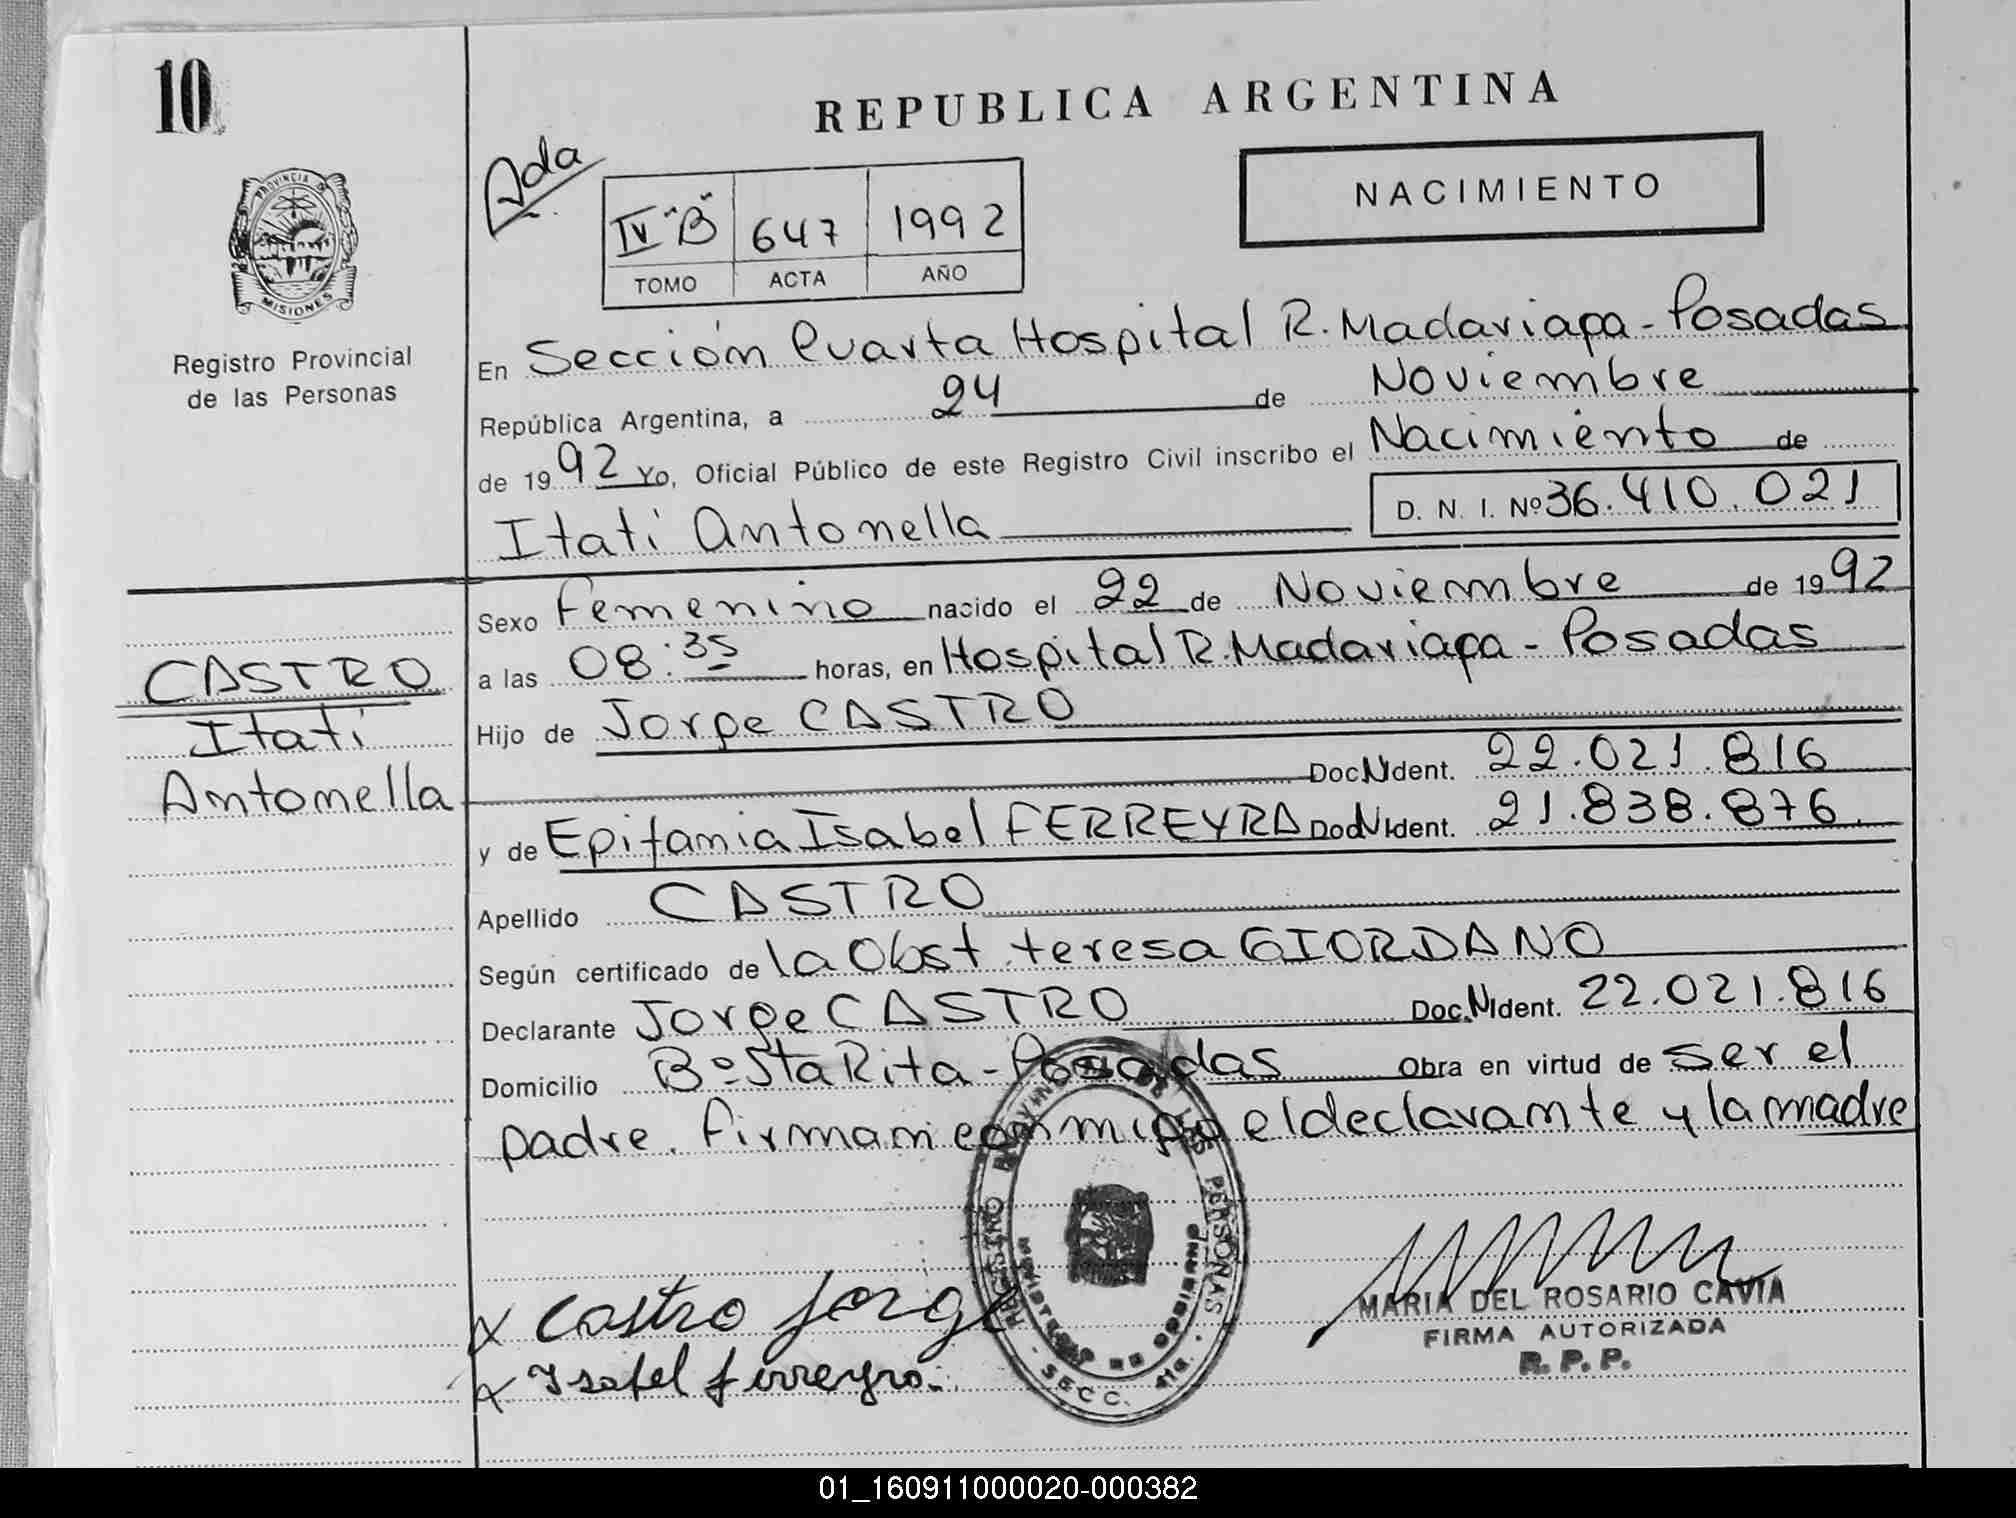 10
REPUBLICA ARGENTINA
PROVINCIA DE
MISIONES
Registro Provincial
de las Personas
Ada
IV "B" 647 1992
TOMO ACTA AÑO
NACIMIENTO
En Sección Cuarta Hospital R. Madariaga - Posadas
República Argentina, a 24 de Noviembre
de 1992 Yo, Oficial Público de este Registro Civil inscribo el Nacimiento de
Itatí Antonella D. N. I. Nº 36.410.021
Sexo Femenino nacido el 22 de Noviembre de 1992
a las 08:35 horas, en Hospital R. Madariaga - Posadas
CASTRO
Itatí
Antonella
Hijo de Jorge CASTRO
Doc N Ident. 22.021.816
y de Epifania Isabel FERREYRA Doc N Ident. 21.838.876.
Apellido CASTRO
Según certificado de la Obst. teresa GIORDANO
Declarante Jorge CASTRO Doc. N Ident. 22.021.816
Domicilio Bº Sta Rita - Posadas Obra en virtud de ser el
padre. Firman conmigo el declarante y la madre
REGISTRO PROVINCIAL DE LAS PERSONAS
MINISTERIO DE GOBIERNO
SECC. 4ta.
Castro Jorge
Isabel Ferreyra.
MARIA DEL ROSARIO CAVIA
FIRMA AUTORIZADA
R. P. P.
01_160911000020-000382